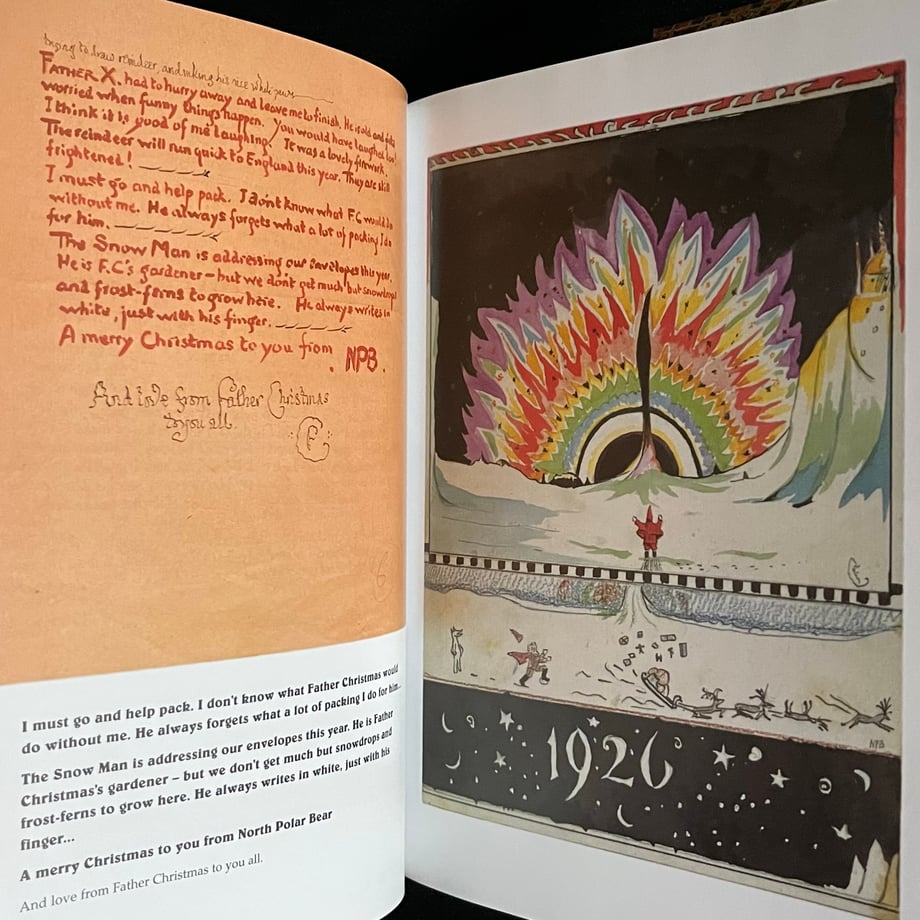 trying to draw reindeer, and inking his nice white paws
FATHER X. had to hurry away and leave me to finish. He is old and gets
worried when funny things happen. You would have laughed too!
I think it is good of me laughing. It was a lovely firework.
The reindeer will run quick to England this year. They are still
frightened!
I must go and help pack. I don't know what F.C would do
without me. He always forgets what a lot of packing I do
for him.
The Snow Man is addressing our envelopes this year.
He is F.C's gardener – but we don't get much but snowdrops
and frost-ferns to grow here. He always writes in
white, just with his finger.
A merry Christmas to you from NPB.
And love from Father Christmas
to you all.
FC
I must go and help pack. I don't know what Father Christmas would
do without me. He always forgets what a lot of packing I do for him...
The Snow Man is addressing our envelopes this year. He is Father
Christmas's gardener – but we don't get much but snowdrops and
frost-ferns to grow here. He always writes in white, just with his
finger...
A merry Christmas to you from North Polar Bear
And love from Father Christmas to you all.
FC
NPB
1926